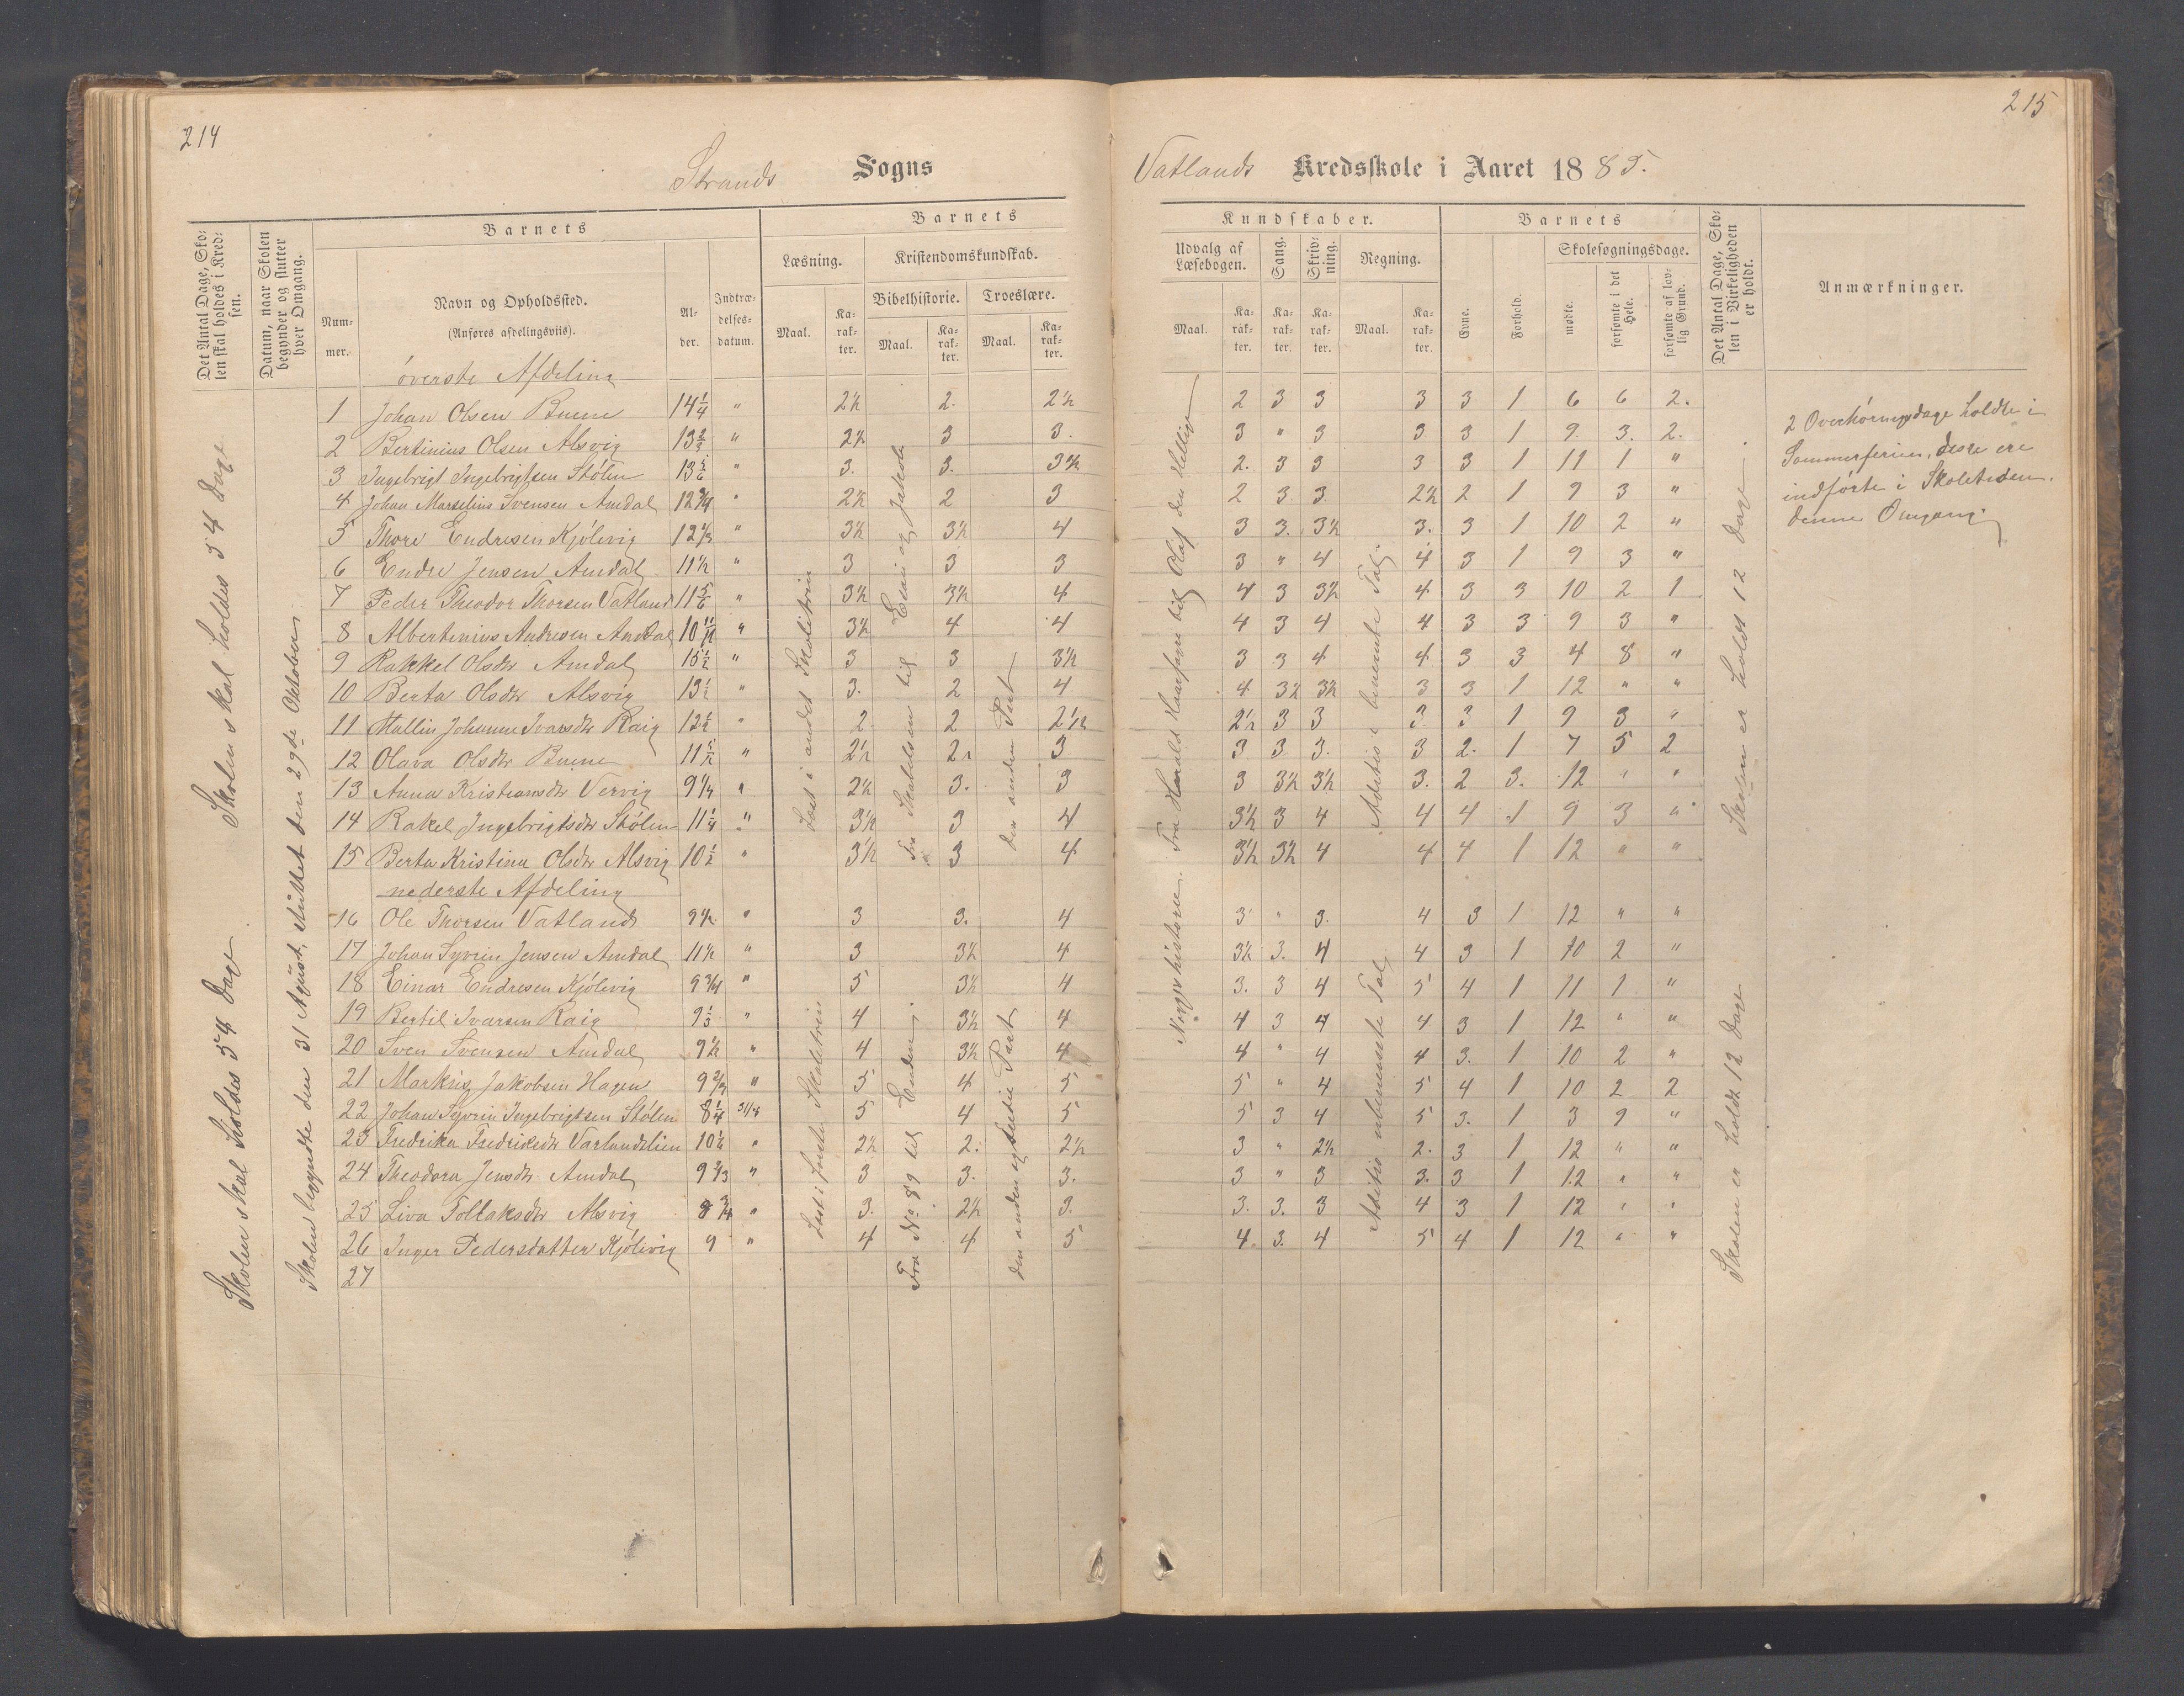 214
Strands Sogns
Det Antal Dage, Sko-
len skal holdes i Kred-
sen.
Datum, naar Skolen
begynder og slutter
hver Omgang.
Barnets
Num-
mer.
Navn og Opholdssted.
(Anføres afdelingsviis).
Al-
der.
Indtræ-
delses-
datum.
Barnets
Læsning.
Kristendomskundskab.
Bibelhistorie. Troeslære.
Maal. Ka-
rak-
ter. Maal. Ka-
rak-
ter. Maal. Ka-
rak-
ter.
Skolen skal holdes 54 Dage
Skolen skal holdes 54 Dage
Skolen begyndte den 31 August, sluttet den 29de Oktober
øverste Afdeling
1 Johan Olsen Buene 14 1/4 " 2½ 2. 2½
2 Bertinius Olsen Alsvig 13 2/3 " 2½ 3 3.
3 Ingebrigt Ingebrigtsen Stølen 13 5/6 " 3. 3. 3½
4 Johan Marselius Svensen Amdal 12 3/4 " 2½ 2 3
5 Thore Endresen Kjølevig 12 1/3 " 3½ 3½ 4
6 Endre Jensen Amdal 11½ " 3 3 3
7 Peder Theodor Thorsen Vatland 11 5/6 " 3½ 3½ 4
8 Albertinius Andresen Amdal 10 11/12 " 3½ 4 4
9 Rakkel Olsdtr Amdal 15½ " 3 3 3½
10 Berta Olsdtr Alsvig 13½ " 3. 2 4
11 Mallin Johanne Ivarsdtr Raig 12½ " 2 2 2½
12 Olava Olsdtr Buene 11 5/12 " 2½ 2½ 3
13 Anna Kristiansdtr Vervig 9 1/4 " 2½ 3. 3
14 Rakel Ingebrigtsdtr Stølen 11 1/4 " 3½ 3 4
15 Berta Kristina Olsdtr Alsvig 10½ " 3½ 3 4
nederste Afdeling
16 Ole Thorsen Vatland 9½ " 3 3. 4
17 Johan Syvrin Jensen Amdal 11½ " 3 3½ 4
18 Einar Endresen Kjølevig 9 3/4 " 5 3½ 4
19 Bertil Ivarsen Raig 9 1/3 " 4 3½ 4
20 Sven Svensen Amdal 9½ " 4 3½ 4
21 Jakobsen Hagen 9 " 5 4 5
22 Johan Syvrin Ingebrigtsen Stølen 8 1/4 31/8 5 4 5
23 Fredrika Fredriksdtr Vatlandslien 10 " 2½ 2. 2½
24 Theodora Jensdtr Amdal 9 2/3 " 3 3. 3.
25 Liva Tollaksdtr Alsvig 8 3/4 " 3. 2½ 3.
26 Inger Pedersdatter Kjølevig 9 " 4 4 5
27
Læst i andet Skoletrin
Fra Skabelsen til Esau og Jakob
den anden Part
Læst i første Skoletrin
Fra No 89 til Enden
den anden og tredie Part
215
Vatlands Kredsskole i Aaret 1885.
Kundskaber.
Udvalg af
Læsebogen.
Sang.
Skriv-
ning.
Regning.
Maal. Ka-
rak-
ter. Ka-
rak-
ter. Ka-
rak-
ter. Maal. Ka-
rak-
ter.
Barnets
Evne.
Forhold.
Skolesøgningsdage.
mødte.
forsømte i det
Hele.
forsømte af lov-
lig Grund.
Det Antal Dage, Sko-
len i Virkeligheden
er holdt.
Anmærkninger.
2 3 3 3 3 1 6 6 2.
3 " 3 3 3 1 9 3. 2.
2. 3 3 3 3 1 11 1 "
2 3 3 2½ 2 1 9 3 "
3 3. 3½ 3. 3 1 10 2 "
3 " 4 4 3 1 9 3 "
4 3 3½ 4 3 3 10 2 1
4 3 4 4 3 3 9 3 "
3 3 4 4 3 3 4 8 "
4 3½ 3½ 3 3 1 12 " "
2½ 3 3 3 3 1 9 3 "
3 3 3. 3 2. 1 7 5 2
3 3½ 3½ 3. 2 3. 12 " "
3½ 3 4 4 4 1 9 3 "
3½ 3½ 4 4 4 1 12 " "
3 " 3. 4 3 1 12 " "
3½ 3. 4 4 3 1 10 2 "
3. 3 4 5 4 1 11 1 "
4 3 4 4 3 1 12 " "
4 " 4 4 3. 1 10 2 "
5 " 4 5 4 1 10 2 2
5 3 4 5 3. 1 3 9 "
3 " 2½ 2. 3 1 12 " "
3 " 3 3. 3 1 12 " "
3. 3. 3 4 3 1 12 " "
4 3. 4 5 4 1 12 " "
Norges historie. Fra Harald Haarfagre til Olaf den Hellige
Addition i benævnte Tal
Addition ubenævnte Tal
Skolen er holdt 12 Dage
Skolen er holdt 12 Dage
2 Overhøringsdage holdte i
Sommerferien, disse ere
indførte i Skoletiden
denne Omgang.